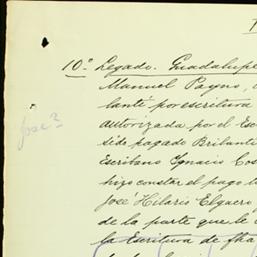 10.° Legado. Guadalupe
Manuel Payno,
lanté por escritura
autorizada por el Esc
sido pagado Brilant
Escribano Ignacio Cos
hizo constar el pago t
José Hilario Elguero
José?
de la parte que le
la Escritura de fha